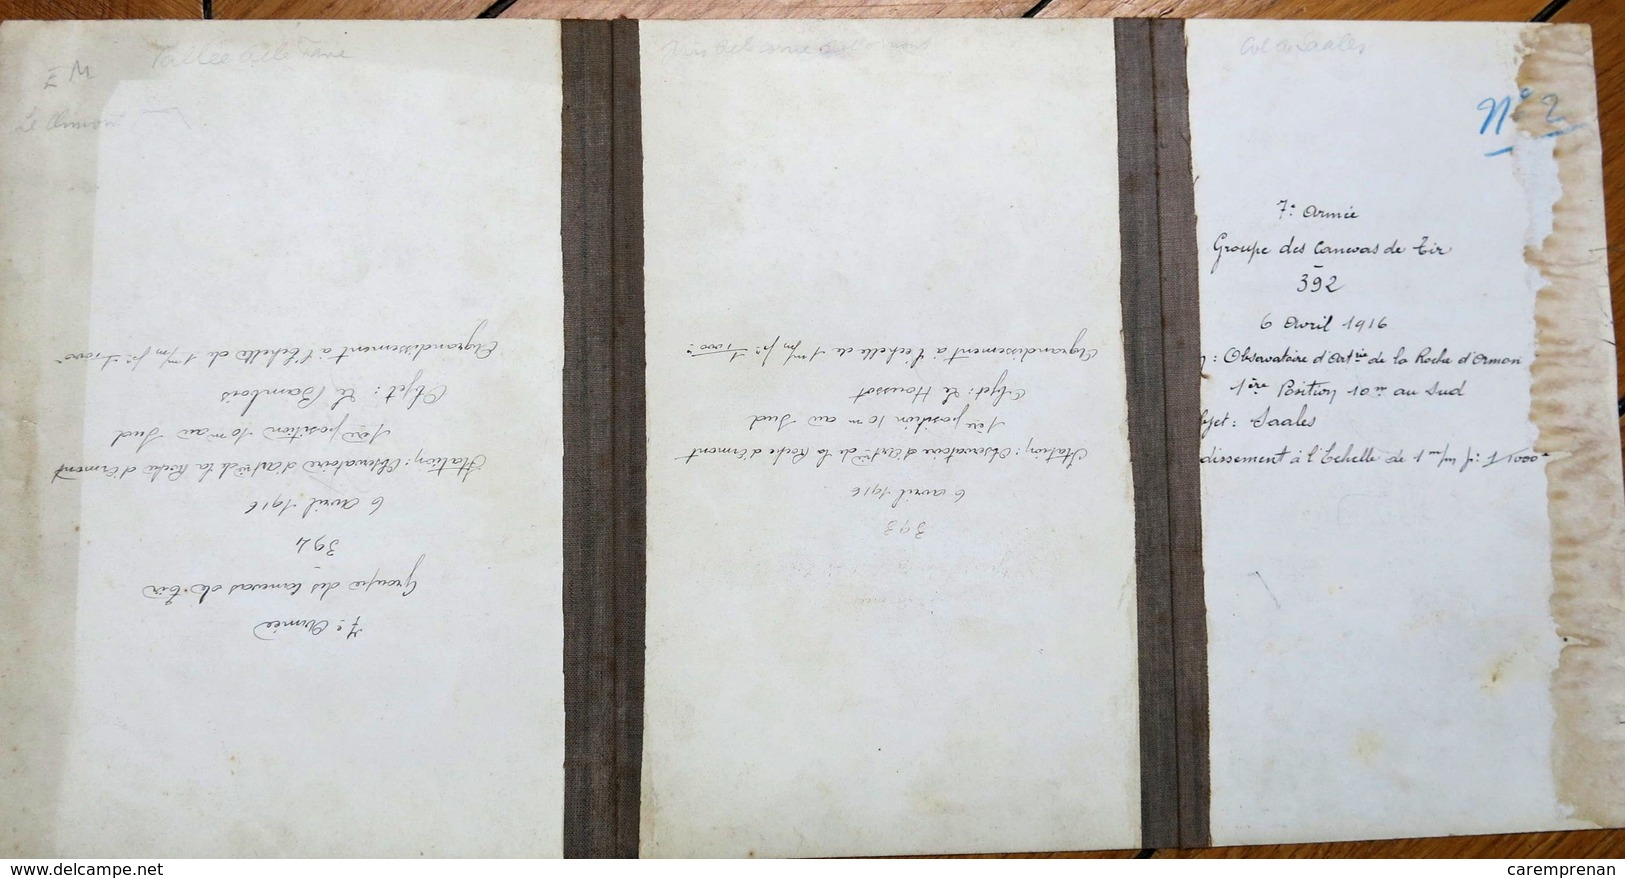 E M
Vallée de la Fave
Le Ormont
7e Armée
Groupe des Canevas de Tir
394
6 avril 1916
Station : Observatoire d'Artrie de la Roche d'Ormont
1ère position 10m au Sud
Objet : Le Bambois
Agrandissement à l'échelle de 1m/m pr 1,000e
393
6 avril 1916
Station : Observatoire d'Artrie de la Roche d'Ormont
1ère position 10m au Sud
Objet : Le Houssot
Agrandissement à l'échelle de 1m/m pr 1,000e
Col de Saales
N° 2
7e Armée
Groupe des Canevas de Tir
392
6 Avril 1916
: Observatoire d'Artrie de la Roche d'Ormon
1ère Position 10m au Sud
bjet : Saales
dissement à l'Echelle de 1m/m pr 1,000e
www.delcampe.net
caremprenan